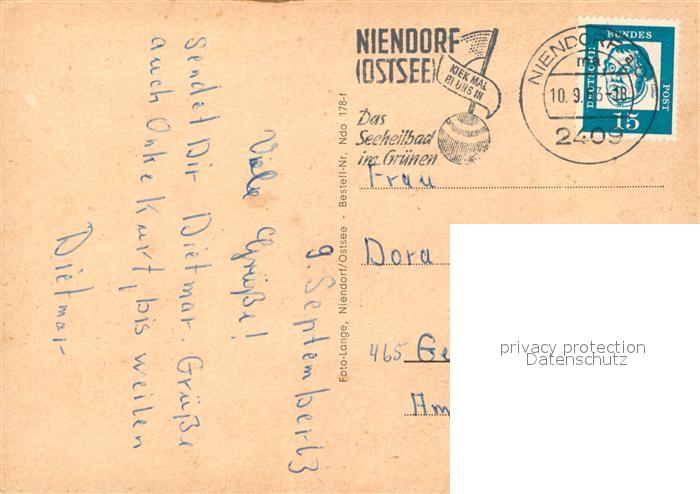 9. September 63
Viele Grüße!
sendet Dir Dietmar. Grüße
auch Onkel Kurt, bis weilen
Dietmar
Foto-Lange, Niendorf/Ostsee - Bestell-Nr. Ndo 178-f
NIENDORF
(OSTSEE)
KIEK MAL
BI UNS IN
Das
Seeheilbad
im Grünen
NIENDORF
10.9.63-18
2409
DEUTSCHE
BUNDES
POST
15
Frau
Dora
465 Ge
Am
privacy protection
Datenschutz